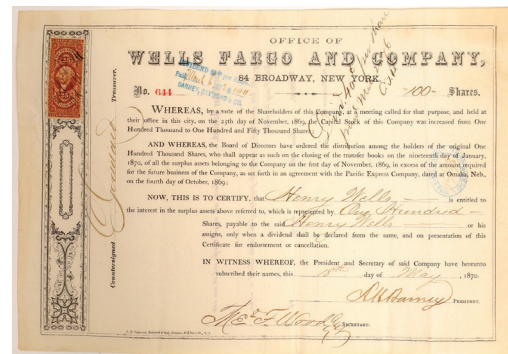 OFFICE OF
WELLS FARGO AND COMPANY,
84 BROADWAY, NEW YORK.
No. 644 -100- Shares.
WHEREAS, by a vote of the Shareholders of this Company, at a meeting called for that purpose, and held at
their office in this city, on the 25th day of November, 1869, the Capital Stock of this Company was increased from One
Hundred Thousand to One Hundred and Fifty Thousand Shares;
AND WHEREAS, the Board of Directors have ordered the distribution among the holders of the original One
Hundred Thousand Shares, who shall appear as such on the closing of the transfer books on the nineteenth day of January,
1870, of all the surplus assets belonging to the Company on the first day of November, 1869, in excess of the amount required
for the future business of the Company, as set forth in an agreement with the Pacific Express Company, dated at Omaha, Neb.,
on the fourth day of October, 1869;
NOW, THIS IS TO CERTIFY, that Henry Wells is entitled to
the interest in the surplus assets above referred to, which is represented by One Hundred
Shares, payable to the said Henry Wells or his
assigns, only when a dividend shall be declared from the same, and on presentation of this
Certificate for endorsement or cancellation.
IN WITNESS WHEREOF, the President and Secretary of said Company have hereunto
subscribed their names, this day of May 1870.
A H Barney PRESIDENT.
SECRETARY.
Countersigned
Treasurer.
DIVIDEND
Paid